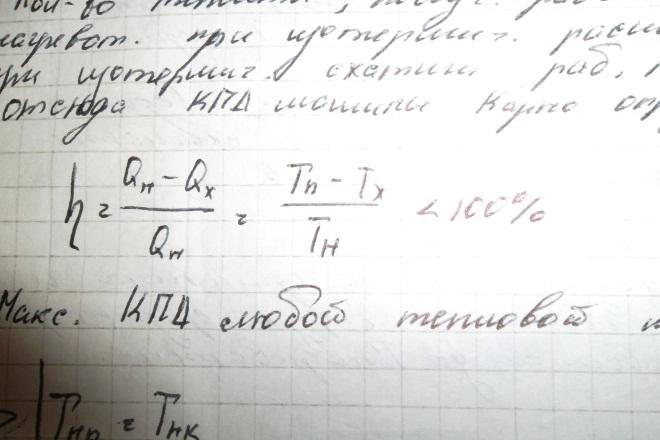 кол-во теплоты, получ. раб
нагреват. при изотермич. расш
при изотермич. сжатии раб.
отсюда КПД машины Карно опр
η = (Qн - Qх) / Qн = (Tн - Tх) / Tн < 100%
Макс. КПД любой тепловой м
Tнр = Tнк